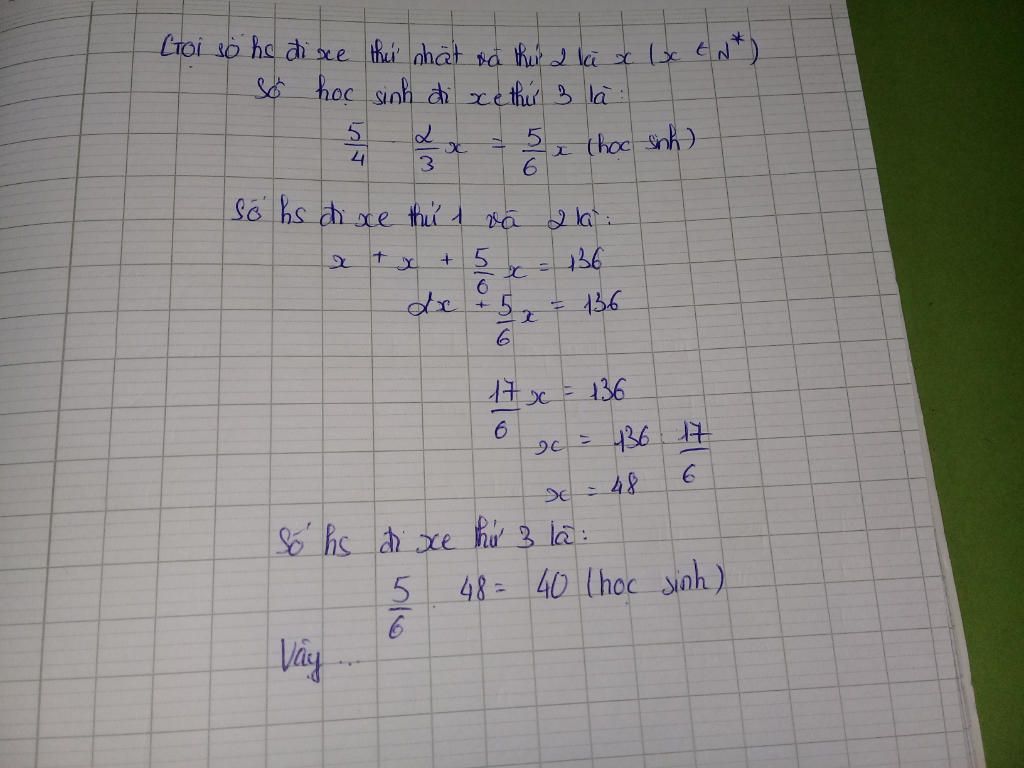 Gọi số hs đi xe thứ nhất và thứ 2 là x (x ∈ N*)
Số học sinh đi xe thứ 3 là:
5/4 . 2/3 x = 5/6 x (học sinh)
Số hs đi xe thứ 1 và 2 là:
x + x + 5/6 x = 136
2x + 5/6 x = 136
17/6 x = 136
x = 136 17/6
x = 48
Số hs đi xe thứ 3 là:
5/6 . 48 = 40 (học sinh)
Vậy ...